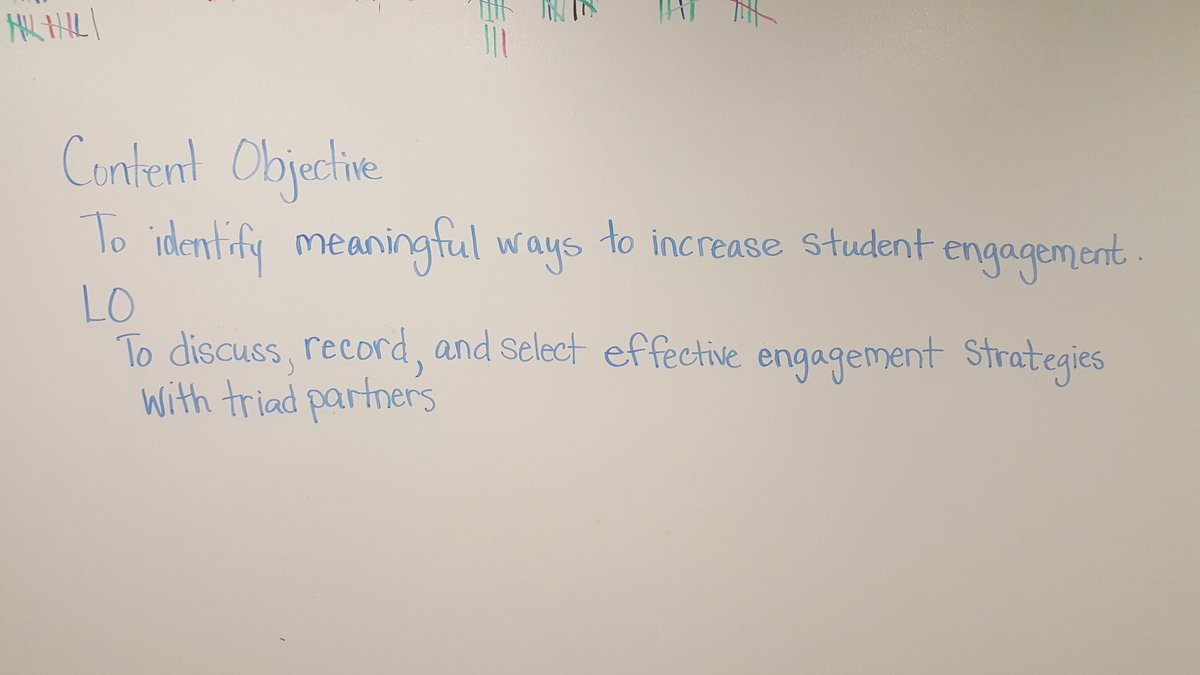 Content Objective
To identify meaningful ways to increase student engagement.
LO
To discuss, record, and select effective engagement Strategies
With triad partners